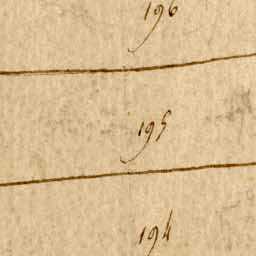 196
195
194